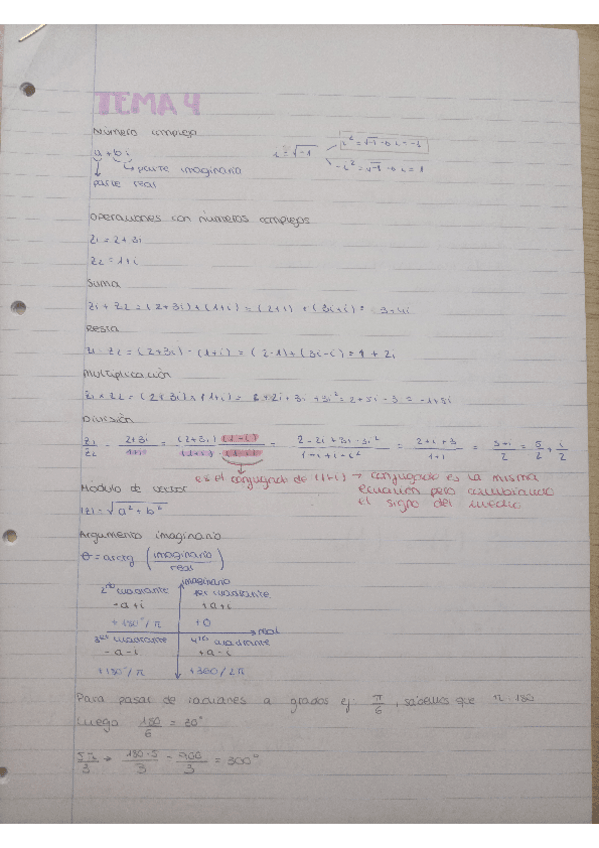 TEMA 4
Número complejo
a + bi
i = √-1
i² = √-1 → i = -1
-i² = √-1 → i = 1
parte imaginaria
parte real
Operaciones con números complejos
z₁ = 2 + 3i
z₂ = 1 + i
Suma
z₁ + z₂ = (2+3i) + (1+i) = (2+1) + (3i+i) = 3+4i
Resta
z₁ - z₂ = (2+3i) - (1+i) = (2-1) + (3i-i) = 1 + 2i
Multiplicación
z₁ × z₂ = (2+3i) × (1+i) = 2+2i + 3i + 3i² = 2+5i - 3 = -1+5i
División
z₁/z₂ = 2+3i/1+i = (2+3i)(1-i)/(1+i)(1-i) = 2-2i+3i-3i²/1-i+i-i² = 2+i+3/1+1 = 5+i/2 = 5/2 + i/2
es el conjugado de (1+i) → conjugado es la misma
ecuación pero cambiando
el signo del medio
Modulo de vector
|z| = √a² + b²
Argumento imaginario
θ = arctg (imaginario/real)
imaginario
2º cuadrante
1er cuadrante
-a+i
+a+i
+180°/π
+0
real
3er cuadrante
4to cuadrante
-a-i
+a-i
+180°/π
+360/2π
Para pasar de radianes a grados ej π/6, sabemos que π 180
luego 180/6 = 30°
5π/3 → 180·5/3 = 900/3 = 300°